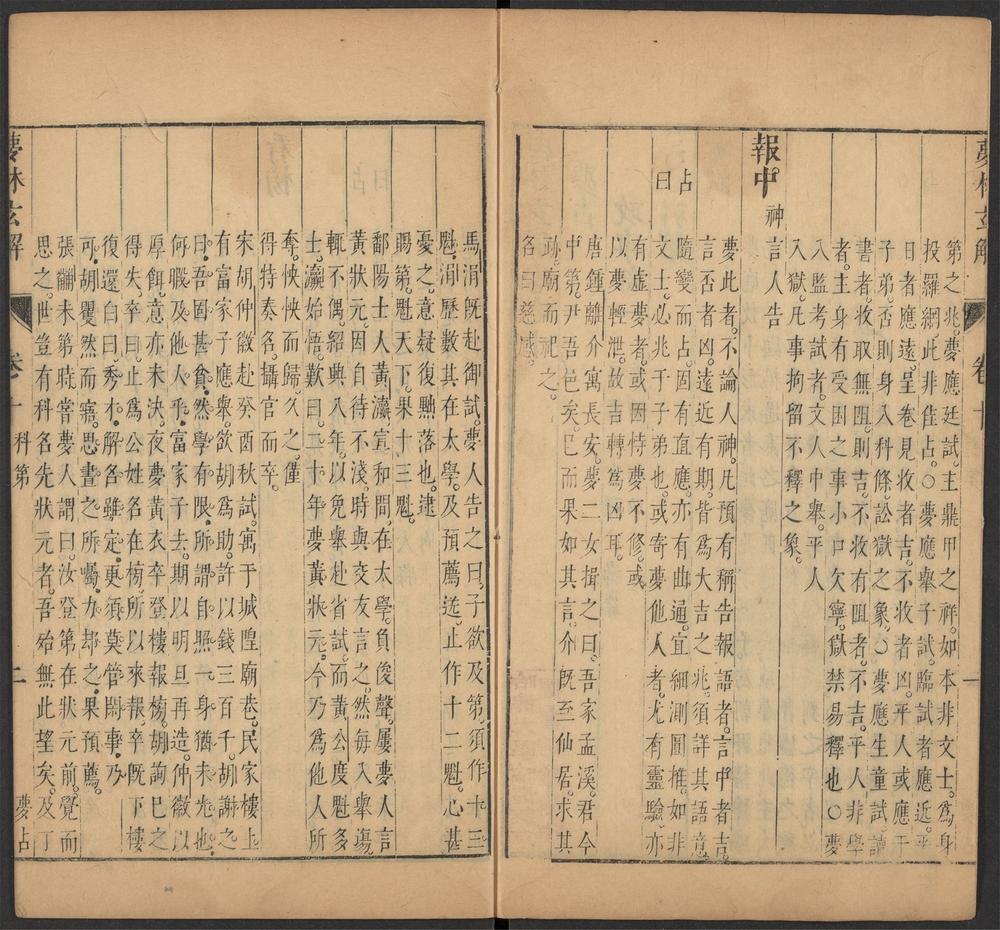 第之兆夢應廷試主鼎甲之祥如本非文士爲身
投羅網此非佳占○夢應舉子試臨試者應近平
日者應遠呈卷見收者吉不收者凶平人或應于
子弟否則身入科條訟獄之象○夢應生童試讀
書者收取無阻則吉不收有阻者不吉平人非學
者主身有受困之事小口欠寧獄禁易釋也○夢
入監考試者文人中舉平人
入獄凡事拘留不釋之象
報中 神言人告
夢此者不論人神凡預有稱告報語者言中者吉
言否者凶遠近有期皆爲大吉之兆須詳其語意
占 隨變而占固有直應亦有曲通宜細測圓推如非
曰 文士必兆于子弟也或寄夢他人者尤有靈驗亦
有虛夢者或因特夢不修或
以夢輕泄故吉轉爲凶耳
唐鍾離介寓長安夢二女揖之曰吾家孟溪君今
中第尹吾邑矣已而果如其言介既至仙居求其
跡廟而祀之
名曰慈感
馬涓既赴御試夢人告之曰子欲及第須作十三
魁涓歷數其在太學及預薦送止作十二魁心甚
憂之意疑復黜落也逮
賜第魁天下果十三魁
鄱陽士人黃瀛宣和間在太學負俊聲屢夢人言
黃狀元因自待不淺時與交友言之然每入舉塲
輒不偶紹興入年以免舉赴省試而黃公度魁多
士瀛始悟歎曰二十年夢黃狀元今乃爲他人所
奪怏怏而歸久之僅
得特奏名攝官而卒
宋胡仲徽赴癸酉秋試寓于城隍廟巷民家樓上
有富家子應舉欲胡爲助許以錢三百千胡謝之
曰吾固甚貧然學有限所謂自照一身猶未光也
何暇及他人乎富家子去期以明旦再造仲徽以
厚餌意亦未決夜夢黃衣卒登樓報榜胡詢巳之
得失卒曰止爲公姓名在榜所以來報卒既下樓
復還白曰秀才解名雖定更須莫管閑事乃
可胡矍然而寤思晝之所囑力却之果預薦
張關未第時嘗夢人謂曰汝登第在狀元前覺而
思之世豈有科名先狀元者吾殆無此望矣及丁
夢林玄解 卷十 科第 二 夢占